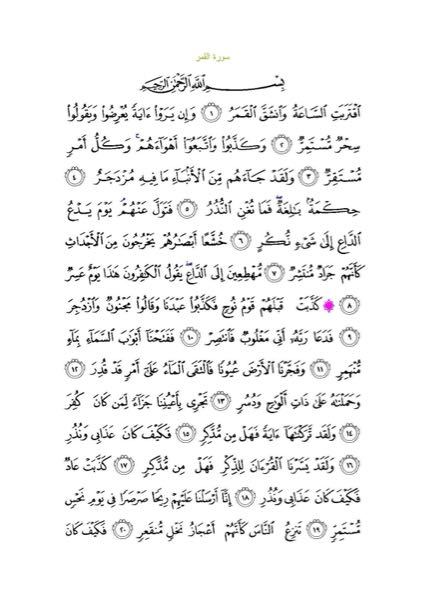 سورة القمر
بِسْمِ اللَّهِ الرَّحْمَٰنِ الرَّحِيمِ
اقْتَرَبَتِ السَّاعَةُ وَانشَقَّ الْقَمَرُ ١ وَإِن يَرَوْا ءَايَةً يُعْرِضُوا وَيَقُولُوا
سِحْرٌ مُّسْتَمِرٌّ ٢ وَكَذَّبُوا وَاتَّبَعُوا أَهْوَاءَهُمْ ۚ وَكُلُّ أَمْرٍ
مُّسْتَقِرٌّ ٣ وَلَقَدْ جَاءَهُم مِّنَ الْأَنبَاءِ مَا فِيهِ مُزْدَجَرٌ ٤
حِكْمَةٌ بَالِغَةٌ ۖ فَمَا تُغْنِ النُّذُرُ ٥ فَتَوَلَّ عَنْهُمْ ۘ يَوْمَ يَدْعُ
الدَّاعِ إِلَىٰ شَيْءٍ نُّكُرٍ ٦ خُشَّعًا أَبْصَارُهُمْ يَخْرُجُونَ مِنَ الْأَجْدَاثِ
كَأَنَّهُمْ جَرَادٌ مُّنتَشِرٌ ٧ مُّهْطِعِينَ إِلَى الدَّاعِ ۖ يَقُولُ الْكَافِرُونَ هَٰذَا يَوْمٌ عَسِرٌ
٨ كَذَّبَتْ قَبْلَهُمْ قَوْمُ نُوحٍ فَكَذَّبُوا عَبْدَنَا وَقَالُوا مَجْنُونٌ وَازْدُجِرَ
٩ فَدَعَا رَبَّهُ أَنِّي مَغْلُوبٌ فَانتَصِرْ ١٠ فَفَتَحْنَا أَبْوَابَ السَّمَاءِ بِمَاءٍ
مُّنْهَمِرٍ ١١ وَفَجَّرْنَا الْأَرْضَ عُيُونًا فَالْتَقَى الْمَاءُ عَلَىٰ أَمْرٍ قَدْ قُدِرَ ١٢
وَحَمَلْنَاهُ عَلَىٰ ذَاتِ أَلْوَاحٍ وَدُسُرٍ ١٣ تَجْرِي بِأَعْيُنِنَا جَزَاءً لِّمَن كَانَ كُفِرَ
١٤ وَلَقَد تَّرَكْنَاهَا ءَايَةً فَهَلْ مِن مُّدَّكِرٍ ١٥ فَكَيْفَ كَانَ عَذَابِي وَنُذُرِ
١٦ وَلَقَدْ يَسَّرْنَا الْقُرْءَانَ لِلذِّكْرِ فَهَلْ مِن مُّدَّكِرٍ ١٧ كَذَّبَتْ عَادٌ
فَكَيْفَ كَانَ عَذَابِي وَنُذُرِ ١٨ إِنَّا أَرْسَلْنَا عَلَيْهِمْ رِيحًا صَرْصَرًا فِي يَوْمِ نَحْسٍ
مُّسْتَمِرٍّ ١٩ تَنزِعُ النَّاسَ كَأَنَّهُمْ أَعْجَازُ نَخْلٍ مُّنقَعِرٍ ٢٠ فَكَيْفَ كَانَ